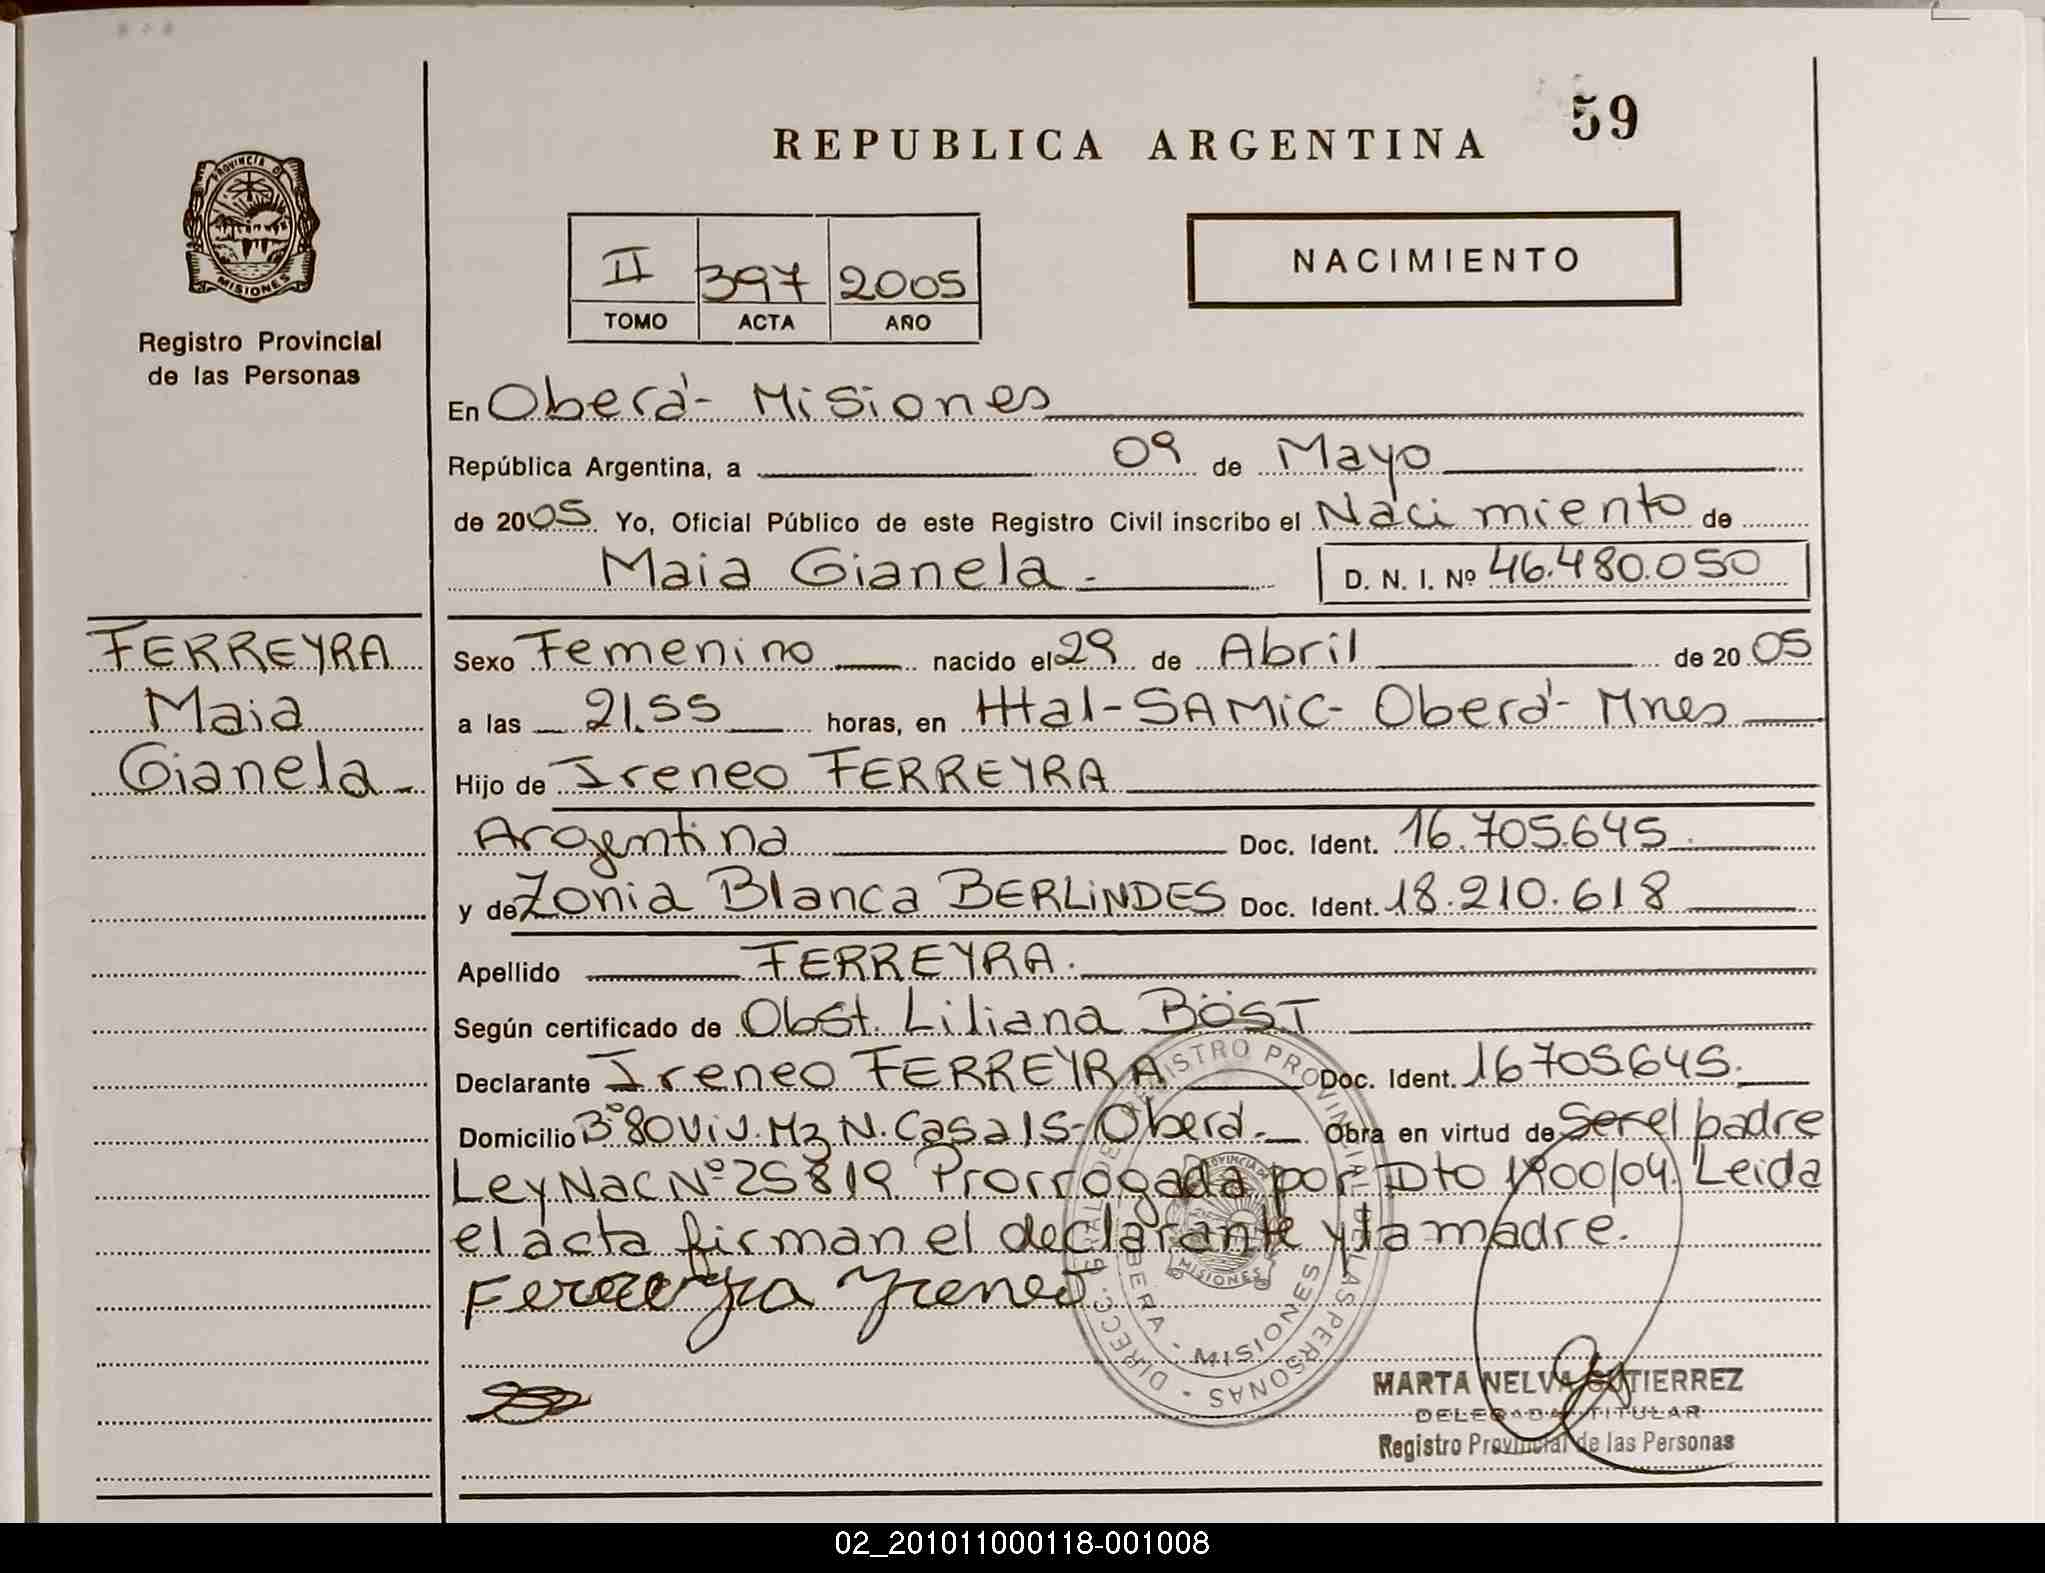 59
REPUBLICA ARGENTINA
PROVINCIA D
MISIONES
Registro Provincial
de las Personas
II 397 2005
TOMO ACTA AÑO
NACIMIENTO
En Oberá - Misiones
República Argentina, a 09 de Mayo
de 2005 Yo, Oficial Público de este Registro Civil inscribo el Nacimiento de
Maia Gianela.- D. N. I. Nº 46.480.050
FERREYRA
Maia
Gianela.-
Sexo Femenino nacido el 29 de Abril de 2005
a las 21.55 horas, en Httal-SAMIC- Oberá- Mnes
Hijo de Ireneo FERREYRA
Argentina Doc. Ident. 16.705.645.
y de Zonia Blanca BERLINDES Doc. Ident. 18.210.618
Apellido FERREYRA.
Según certificado de Obst. Liliana BÖST
Declarante Ireneo FERREYRA Doc. Ident. 16705645.
Domicilio Bº 80 Viv. Mz N. Casa 15- Oberá.- Obra en virtud de Ser el padre
Ley Nac Nº 25819 Prorrogada por Dto 1900/04. Leida
el acta firman el declarante y la madre.
Ferreyra Yreneo
DIRECC. GRAL. DE REGISTRO PROVINCIAL DE LAS PERSONAS
OBERA - MISIONES
PROVINCIA DE
MISIONES
MARTA NELVA GUTIERREZ
DELEGADA TITULAR
Registro Provincial de las Personas
02_201011000118-001008